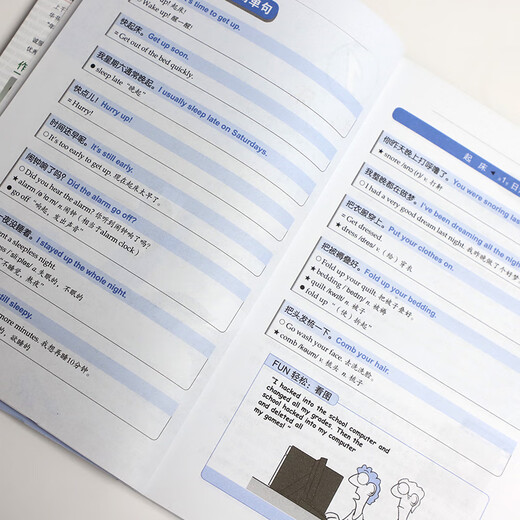 单句
It's time to get up.
起床!
Wake up! 醒一醒!
快起床。Get up soon.
= Get out of the bed quickly.
我星期六通常晚起。I usually sleep late on Saturdays.
● sleep late "晚起"
快点儿! Hurry up!
= Hurry!
时间还早呢。It's still early.
○ It's too early to get up. 现在起床太早了。
闹钟响了吗? Did the alarm go off?
○ Did you hear the alarm? 你听到闹钟响了吗?
★ alarm n. 闹钟 (相当于 alarm clock)
● go off "响起,发出声音"
夜没睡着。I stayed up the whole night.
a sleepless night.
a. 失眠的,不眠的
"不睡觉,熬夜"
still sleepy.
more minutes. 我想再睡10分钟。
的,欲睡的
起 床 ◀ 1
你昨天晚上打呼噜了。You were snoring last
★ snore v. 打鼾
我整晚都在做梦。I've been dreaming all the night
○ I had a very good dream last night.
把衣服穿上。Put your clothes on.
= Get dressed.
★ dress v. (给)穿衣
把被褥叠好。Fold up your bedding.
○ Fold up your quilt. 把被子叠好.
★ bedding n. 被褥
★ quilt n. 被子
● fold up "(使)折起"
把头发梳一下。Comb your hair.
○ Go wash your face. 去洗洗脸。
★ comb v. 梳头 n. 梳子
FUN 轻松:看图
"I hacked into the school computer and
changed all my grades. Then the
school hacked into my computer
and deleted all
my games!"